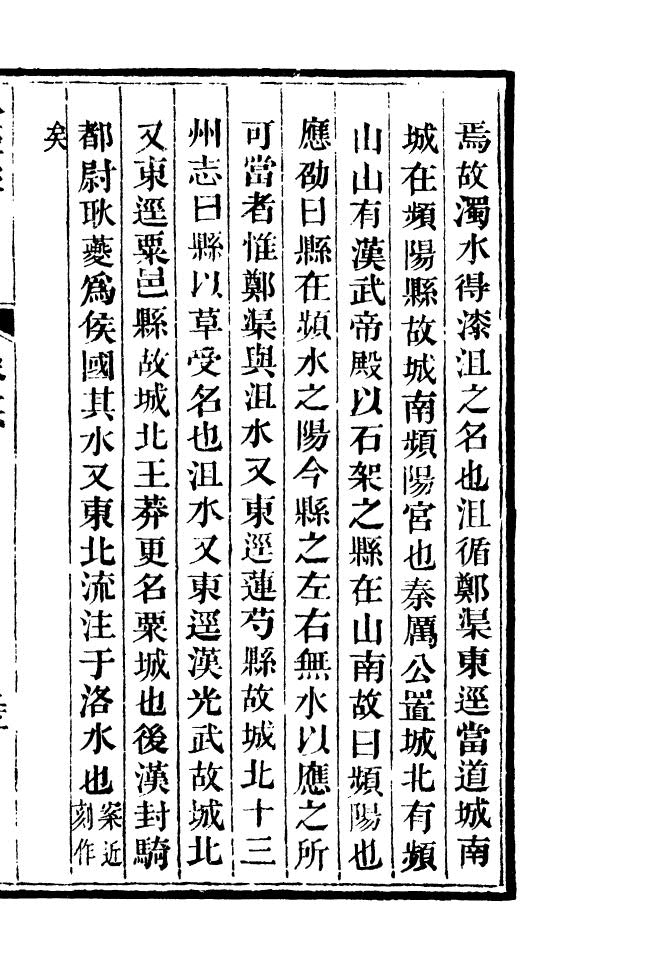 焉故濁水得漆沮之名也沮循鄭渠東逕當道城南
城在頻陽縣故城南頻陽宮也秦厲公置城北有頻
山山有漢武帝殿以石架之縣在山南故曰頻陽也
應劭曰縣在頻水之陽今縣之左右無水以應之所
可當者惟鄭渠與沮水又東逕蓮芍縣故城北十三
州志曰縣以草受名也沮水又東逕漢光武故城北
又東逕粟邑縣故城北王莽更名粟城也後漢封騎
都尉耿夔爲侯國其水又東北流注于洛水也案近刻作
矣